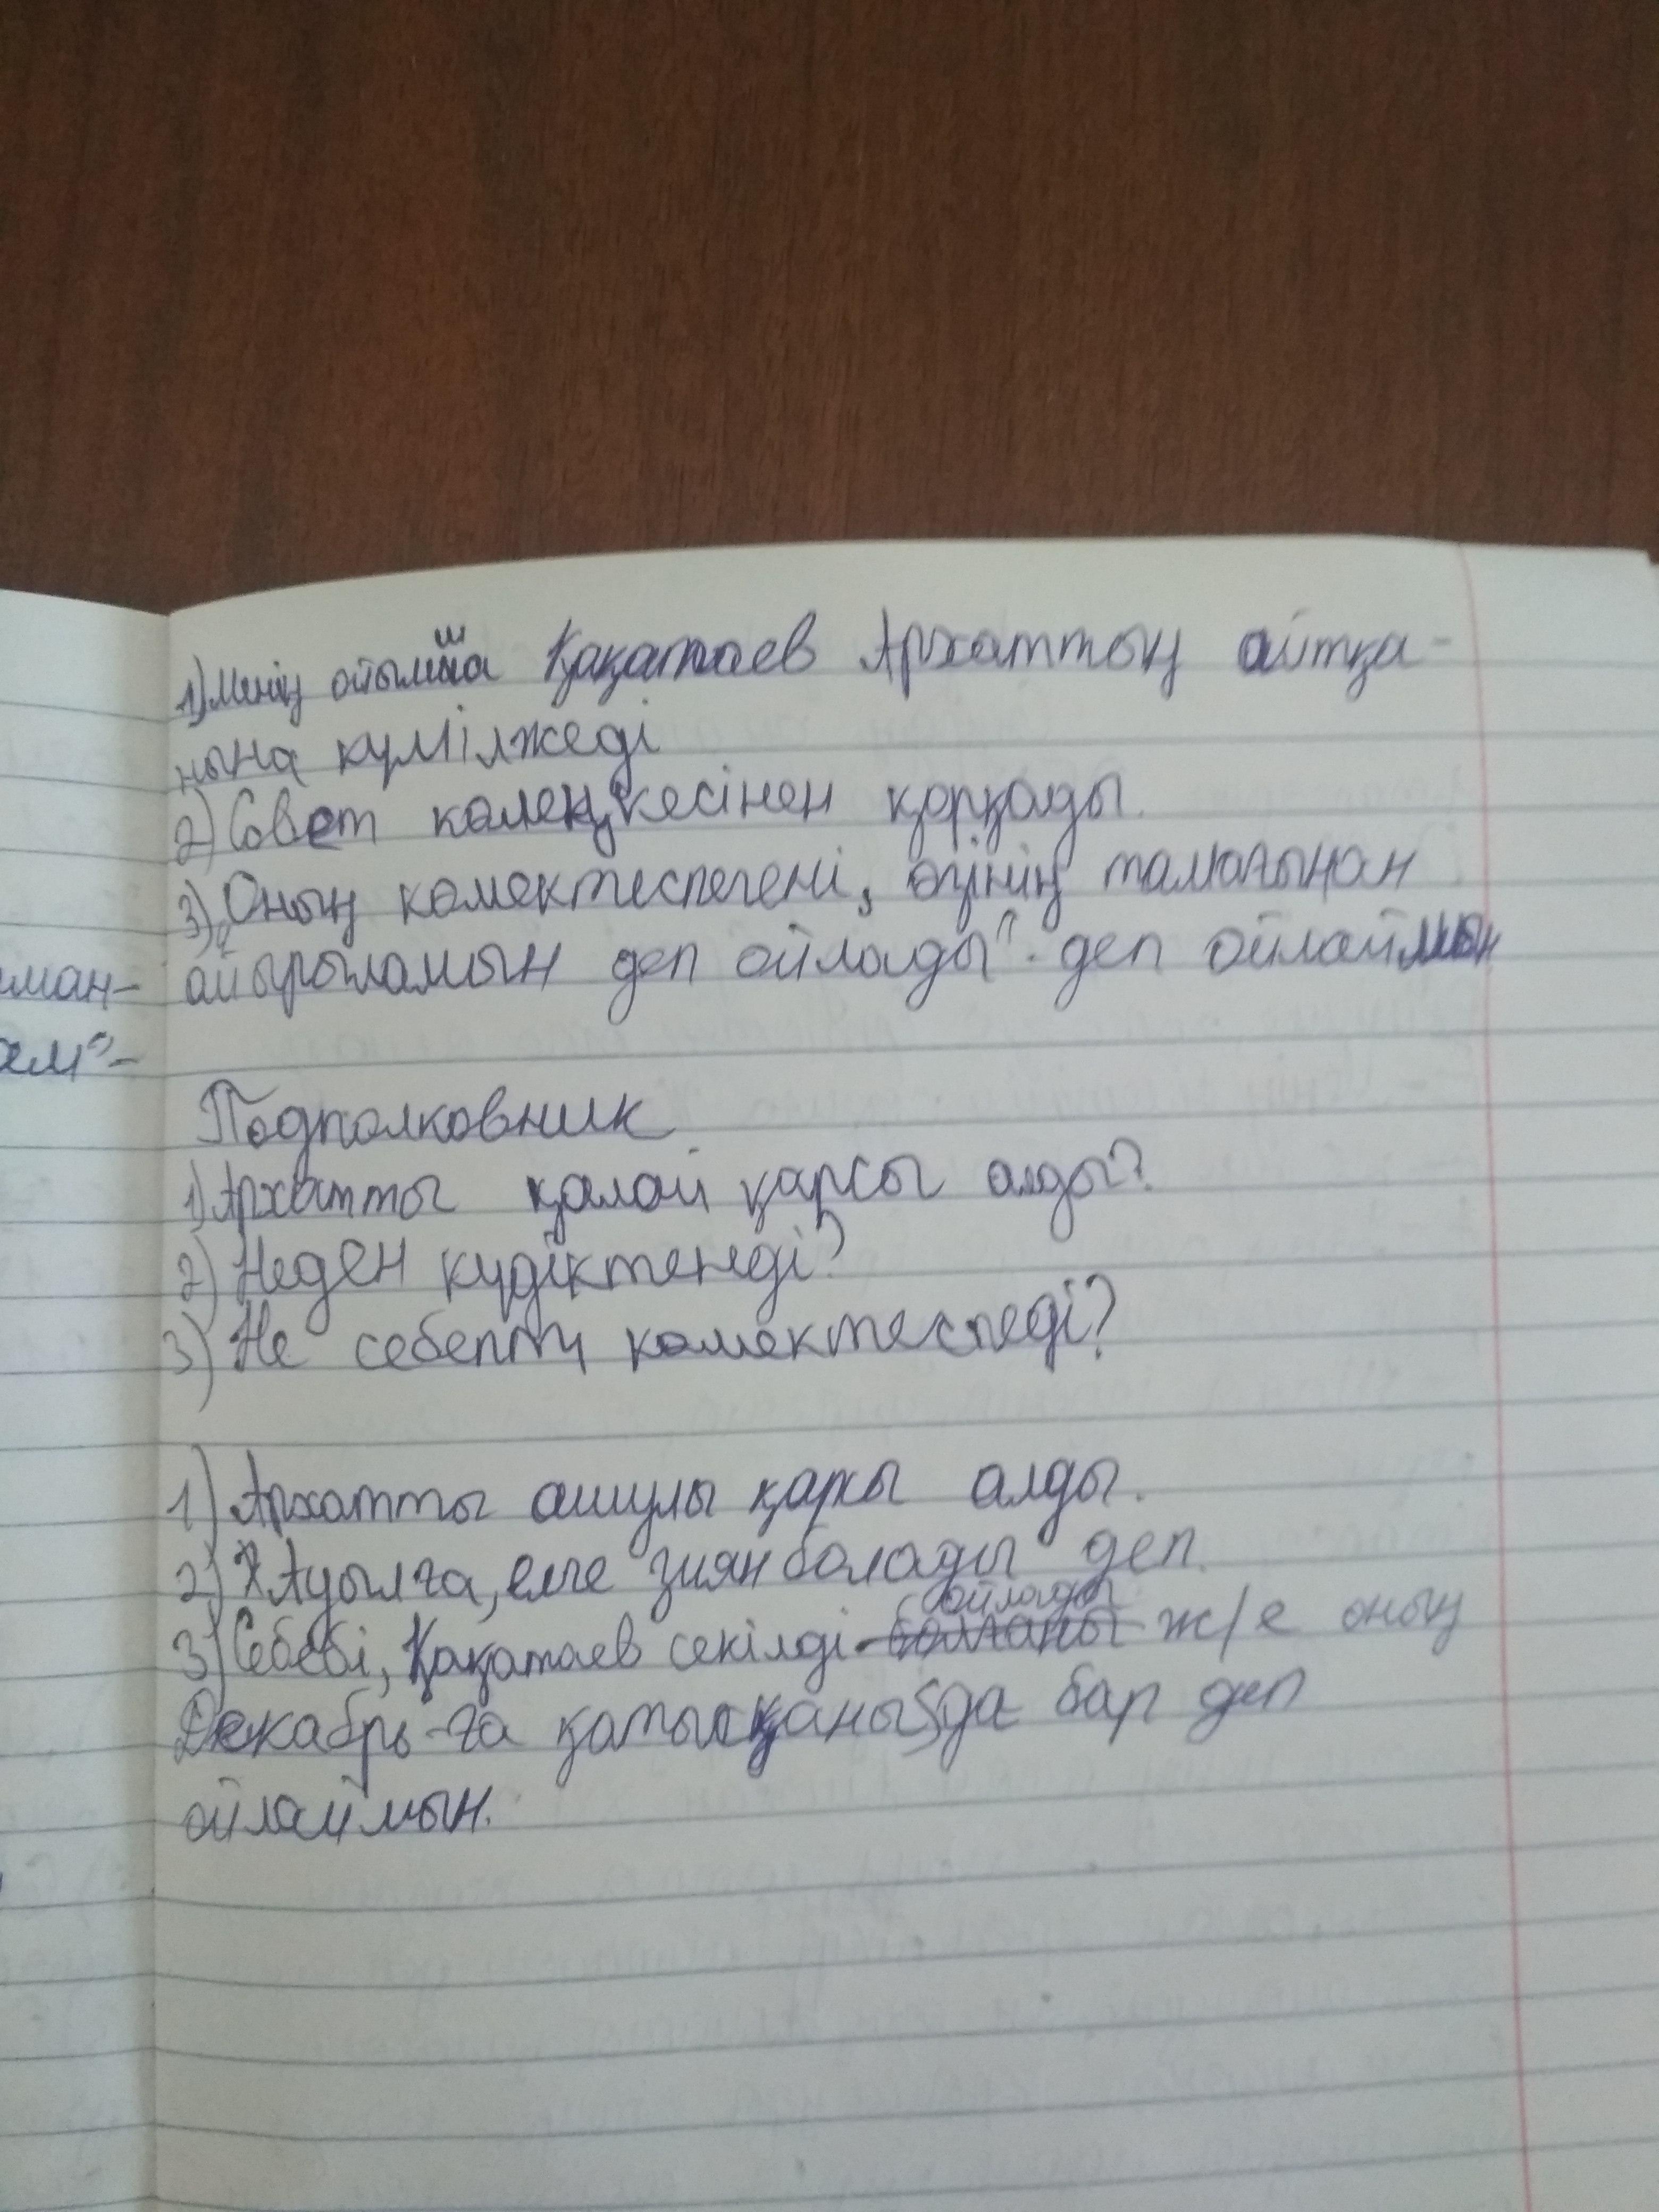 1) Менің ойымша Қақатаев Архаттың айтқа-
нына күмілжеді
2) Совет көлеңкесінен қорқады.
3) Оның көмектеспегені, "өзінің тамағынан
ман- айырыламын деп ойлады". деп ойлаймын
ам"-
Подполковник
1) Архатты қалай қарсы алды?
2) Неден күдіктенді?
3) Не себепті көмектеспеді?
1) Архатты ашулы қарсы алды.
2) Ауылға, елге зиян болады деп.
ойлады
3) Себебі, Қақатаев секілді болғаны ж/е оның
Декабрь-ға қатысқаны да бар деп
ойлаймын.